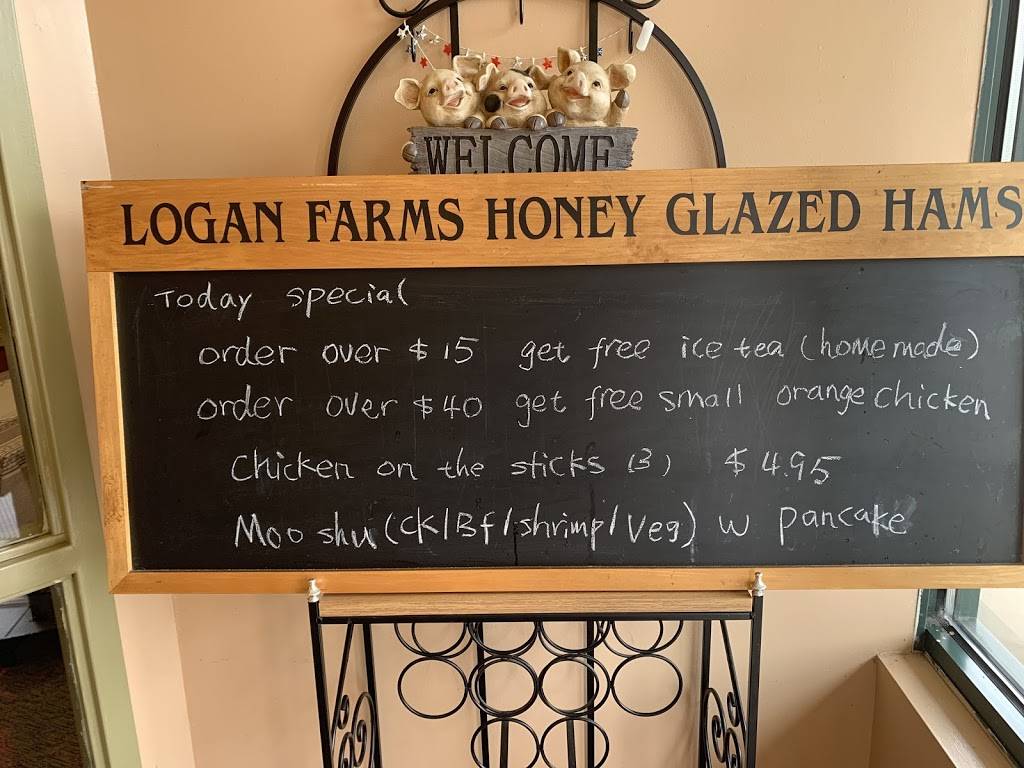 WELCOME
LOGAN FARMS HONEY GLAZED HAMS
Today special
order over $15 get free ice tea (homemade)
order over $40 get free small orange chicken
Chicken on the sticks (3) $4.95
Moo shu (CK/Bf/shrimp/Veg) w pancake